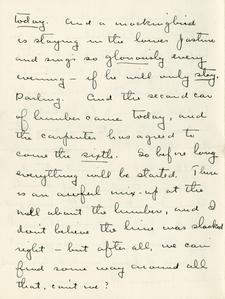 today. And a mockingbird
is staying in the lower pasture
and sings so gloriously every
evening - if he will only stay.
Darling. And the second car
of lumber came today, and
the carpenter has agreed to
come the sixth. So before long
everything will be started. There
is an awful mix-up at the
mill about the lumber, and I
don't believe the lime was slacked
right - but after all, we can
find some way around all
that, can't we?